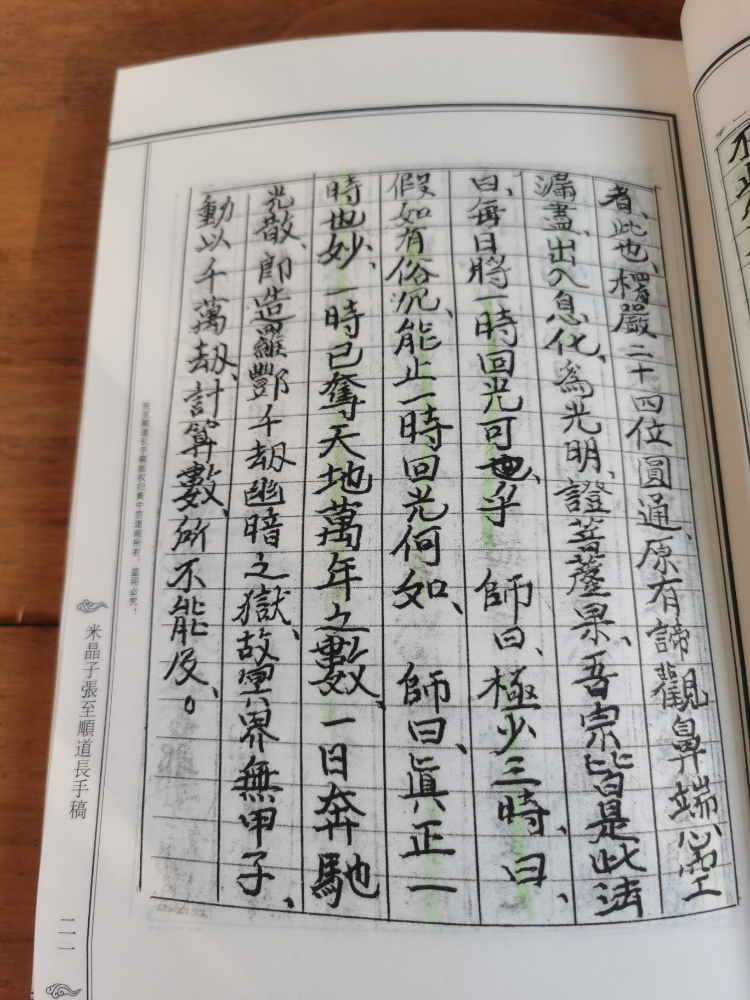 者、此也、楞嚴二十四位圓通、原有諦觀鼻端心空
漏盡、出入息化、為光明、證菩薩果、吾宗皆是此法
曰、每日將一時回光可也、乎　師曰、極少三時、曰、
假如有俗況、能止一時回光何如、　師曰、真正一
時也妙、一時已奪天地萬年之數、一日奔馳
光散、即造羅酆千劫幽暗之獄、故冥界無甲子、
動以千萬劫、計算數、所不能及、。
張至順道长手稿版权归黄中宫道观所有，盗用必究！
米晶子張至順道長手稿
二一